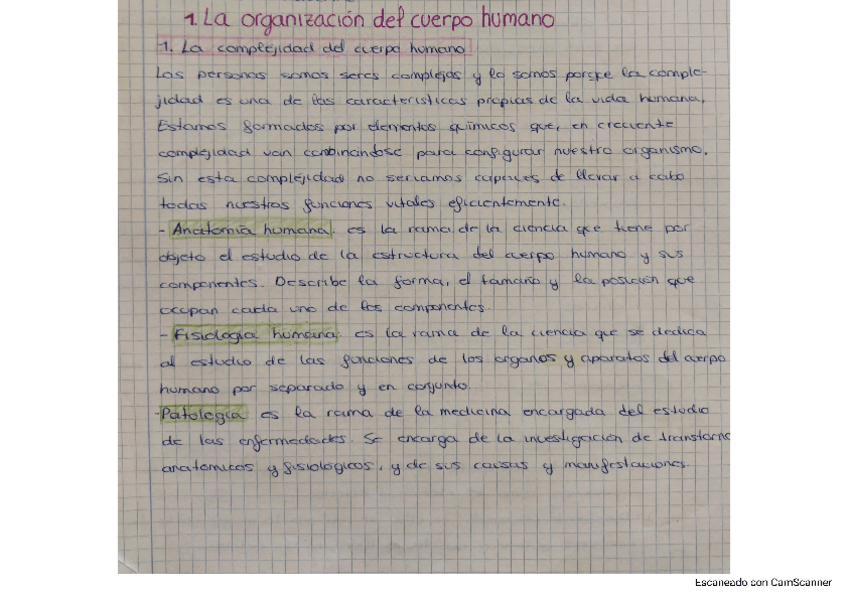 1. La organización del cuerpo humano
1. La complejidad del cuerpo humano
Las personas somos seres complejas y lo somos porque la comple-
jidad es una de las características propias de la vida humana.
Estamos formados por elementos químicos que, en creciente
complejidad van combinándose para configurar nuestro organismo.
Sin esta complejidad no seríamos capaces de llevar a cabo
todas nuestras funciones vitales eficientemente.
- Anatomía humana: es la rama de la ciencia que tiene por
objeto el estudio de la estructura del cuerpo humano y sus
componentes. Describe la forma, el tamaño y la posición que
ocupan cada uno de los componentes.
- Fisiología humana: es la rama de la ciencia que se dedica
al estudio de las funciones de los organos y aparatos del cuerpo
humano por separado y en conjunto.
-Patología es la rama de la medicina encargada del estudio
de las enfermedades. Se encarga de la investigación de transtorno
anatómicos y fisiológicos, y de sus causas y manifestaciones.
Escaneado con CamScanner